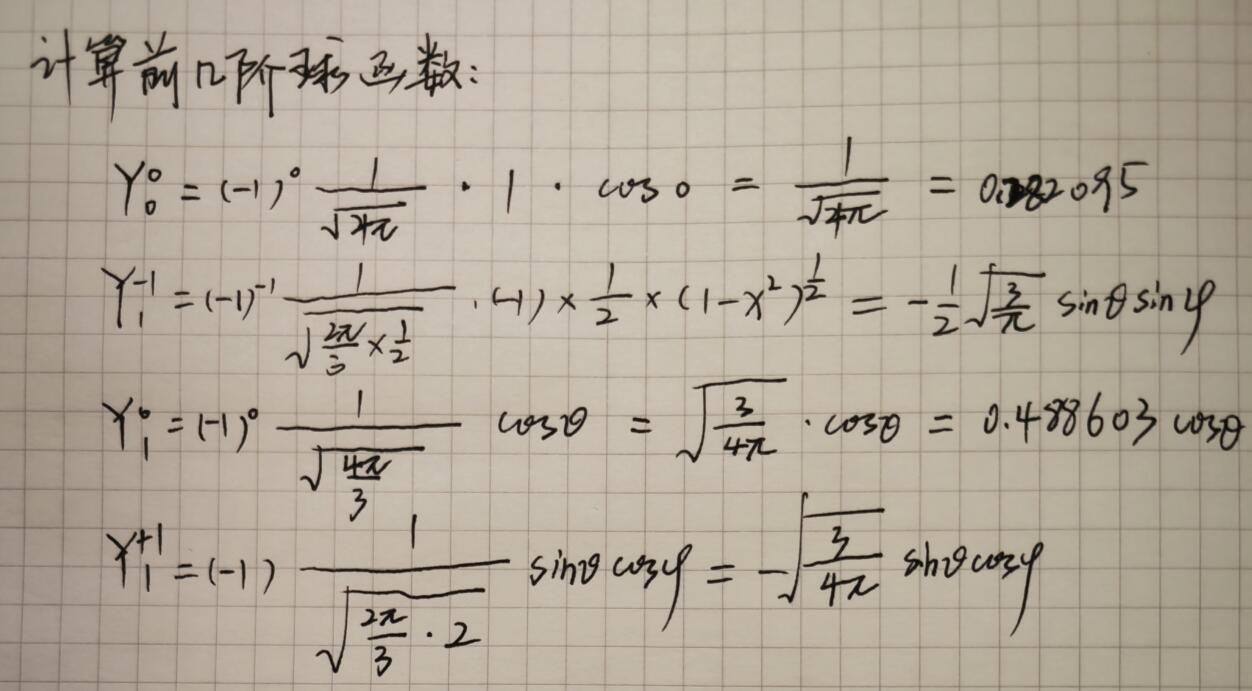 计算前几阶球函数:
Y₀⁰ = (-1)⁰ 1/√(4π) · 1 · cos0 = 1/√(4π) = 0.282095
Y₁⁻¹ = (-1)⁻¹ 1/√(2π/3 × 1/2) · (-1) × 1/2 × (1-x²)^(1/2) = -1/2 √(3/π) sinθ sinφ
Y₁⁰ = (-1)⁰ 1/√(4π/3) cosθ = √(3/4π) · cosθ = 0.488603 cosθ
Y₁⁺¹ = (-1) 1/√(2π/3 · 2) sinθ cosφ = -√(3/4π) sinθ cosφ